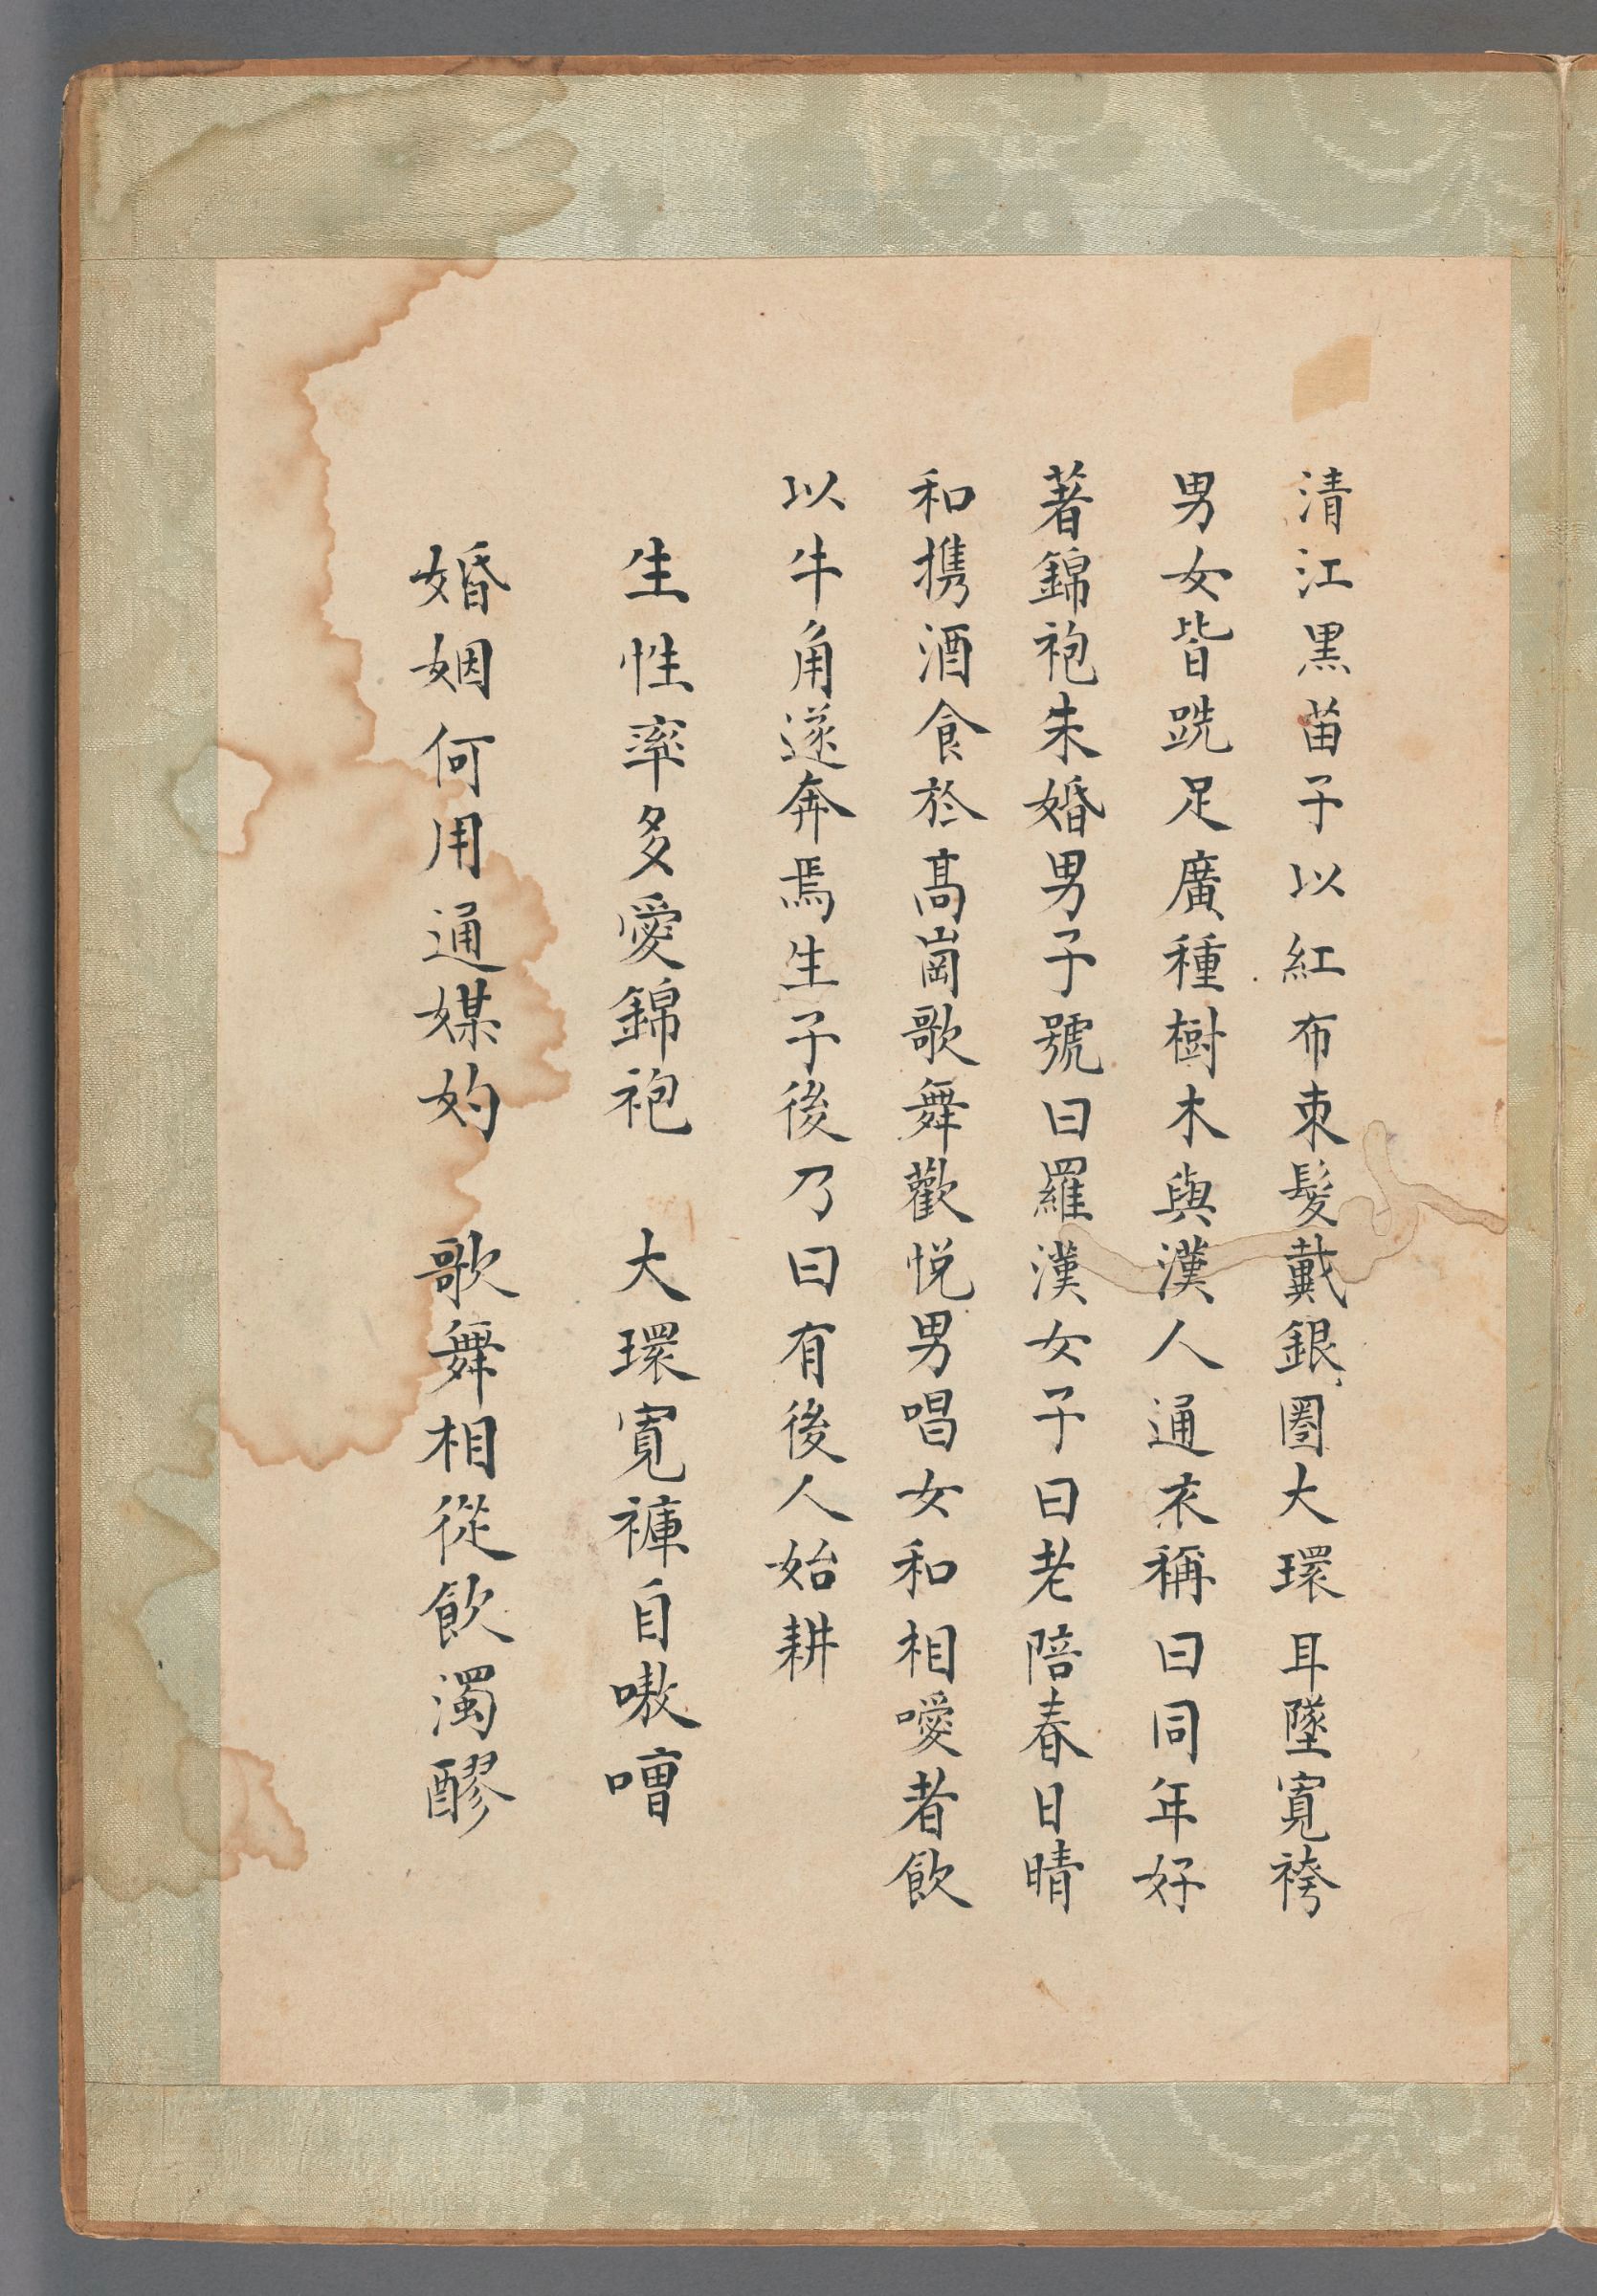 清江黑苗子以紅布束髮戴銀圈大環耳墜寬袴
男女皆跣足廣種樹木與漢人通衣稱曰同年好
著錦袍未婚男子號曰羅漢女子曰老陪春日晴
和携酒食於髙崗歌舞歡悦男唱女和相噯者飲
以牛角遂奔焉生子後乃曰有後人始耕
生性率多愛錦袍　大環寬褲自嗷嘈
婚姻何用通媒妁　歌舞相從飲濁醪